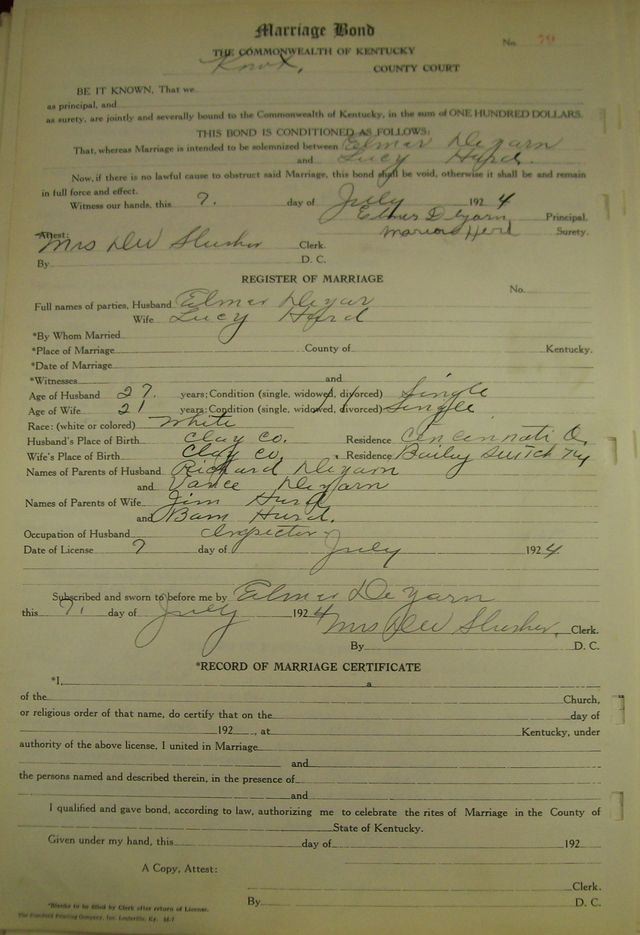 Marriage Bond
No. 79
THE COMMONWEALTH OF KENTUCKY
Knox, COUNTY COURT
BE IT KNOWN, That we
as principal, and
as surety, are jointly and severally bound to the Commonwealth of Kentucky, in the sum of ONE HUNDRED DOLLARS.
THIS BOND IS CONDITIONED AS FOLLOWS:
That, whereas Marriage is intended to be solemnized between Elmer Deyarn
and Lucy Hurd.
Now, if there is no lawful cause to obstruct said Marriage, this bond shall be void, otherwise it shall be and remain
in full force and effect.
Witness our hands, this 7. day of July 1924
Elmer Deyarn Principal.
Attest: Marion Herd Surety.
Mrs DW Slusher Clerk.
By D. C.
REGISTER OF MARRIAGE
No.
Full names of parties, Husband Elmer Deyar
Wife Lucy Hurd
*By Whom Married
*Place of Marriage County of Kentucky.
*Date of Marriage
*Witnesses and
Age of Husband 27. years; Condition (single, widowed, divorced) Single
Age of Wife 21 years; Condition (single, widowed, divorced) Single
Race: (white or colored) White
Husband's Place of Birth Clay Co. Residence Cincinnati O.
Wife's Place of Birth Clay Co. Residence Bailey Switch Ky
Names of Parents of Husband Richard Deyarn
and Vance Deyarn
Names of Parents of Wife Jim Hurd
and Bam Hurd.
Occupation of Husband Inspector
Date of License 7 day of July 1924
Subscribed and sworn to before me by Elmer DeYarn
this 7. day of July 1924 Mrs DW Slusher, Clerk.
By D. C.
*RECORD OF MARRIAGE CERTIFICATE
*I, a
of the Church,
or religious order of that name, do certify that on the day of
192, at Kentucky, under
authority of the above license, I united in Marriage
and
the persons named and described therein, in the presence of
and
I qualified and gave bond, according to law, authorizing me to celebrate the rites of Marriage in the County of
State of Kentucky.
Given under my hand, this day of 192
A Copy, Attest:
Clerk.
By D. C.
*Blanks to be filled by Clerk after return of License.
The Standard Printing Company, Inc. Louisville, Ky.